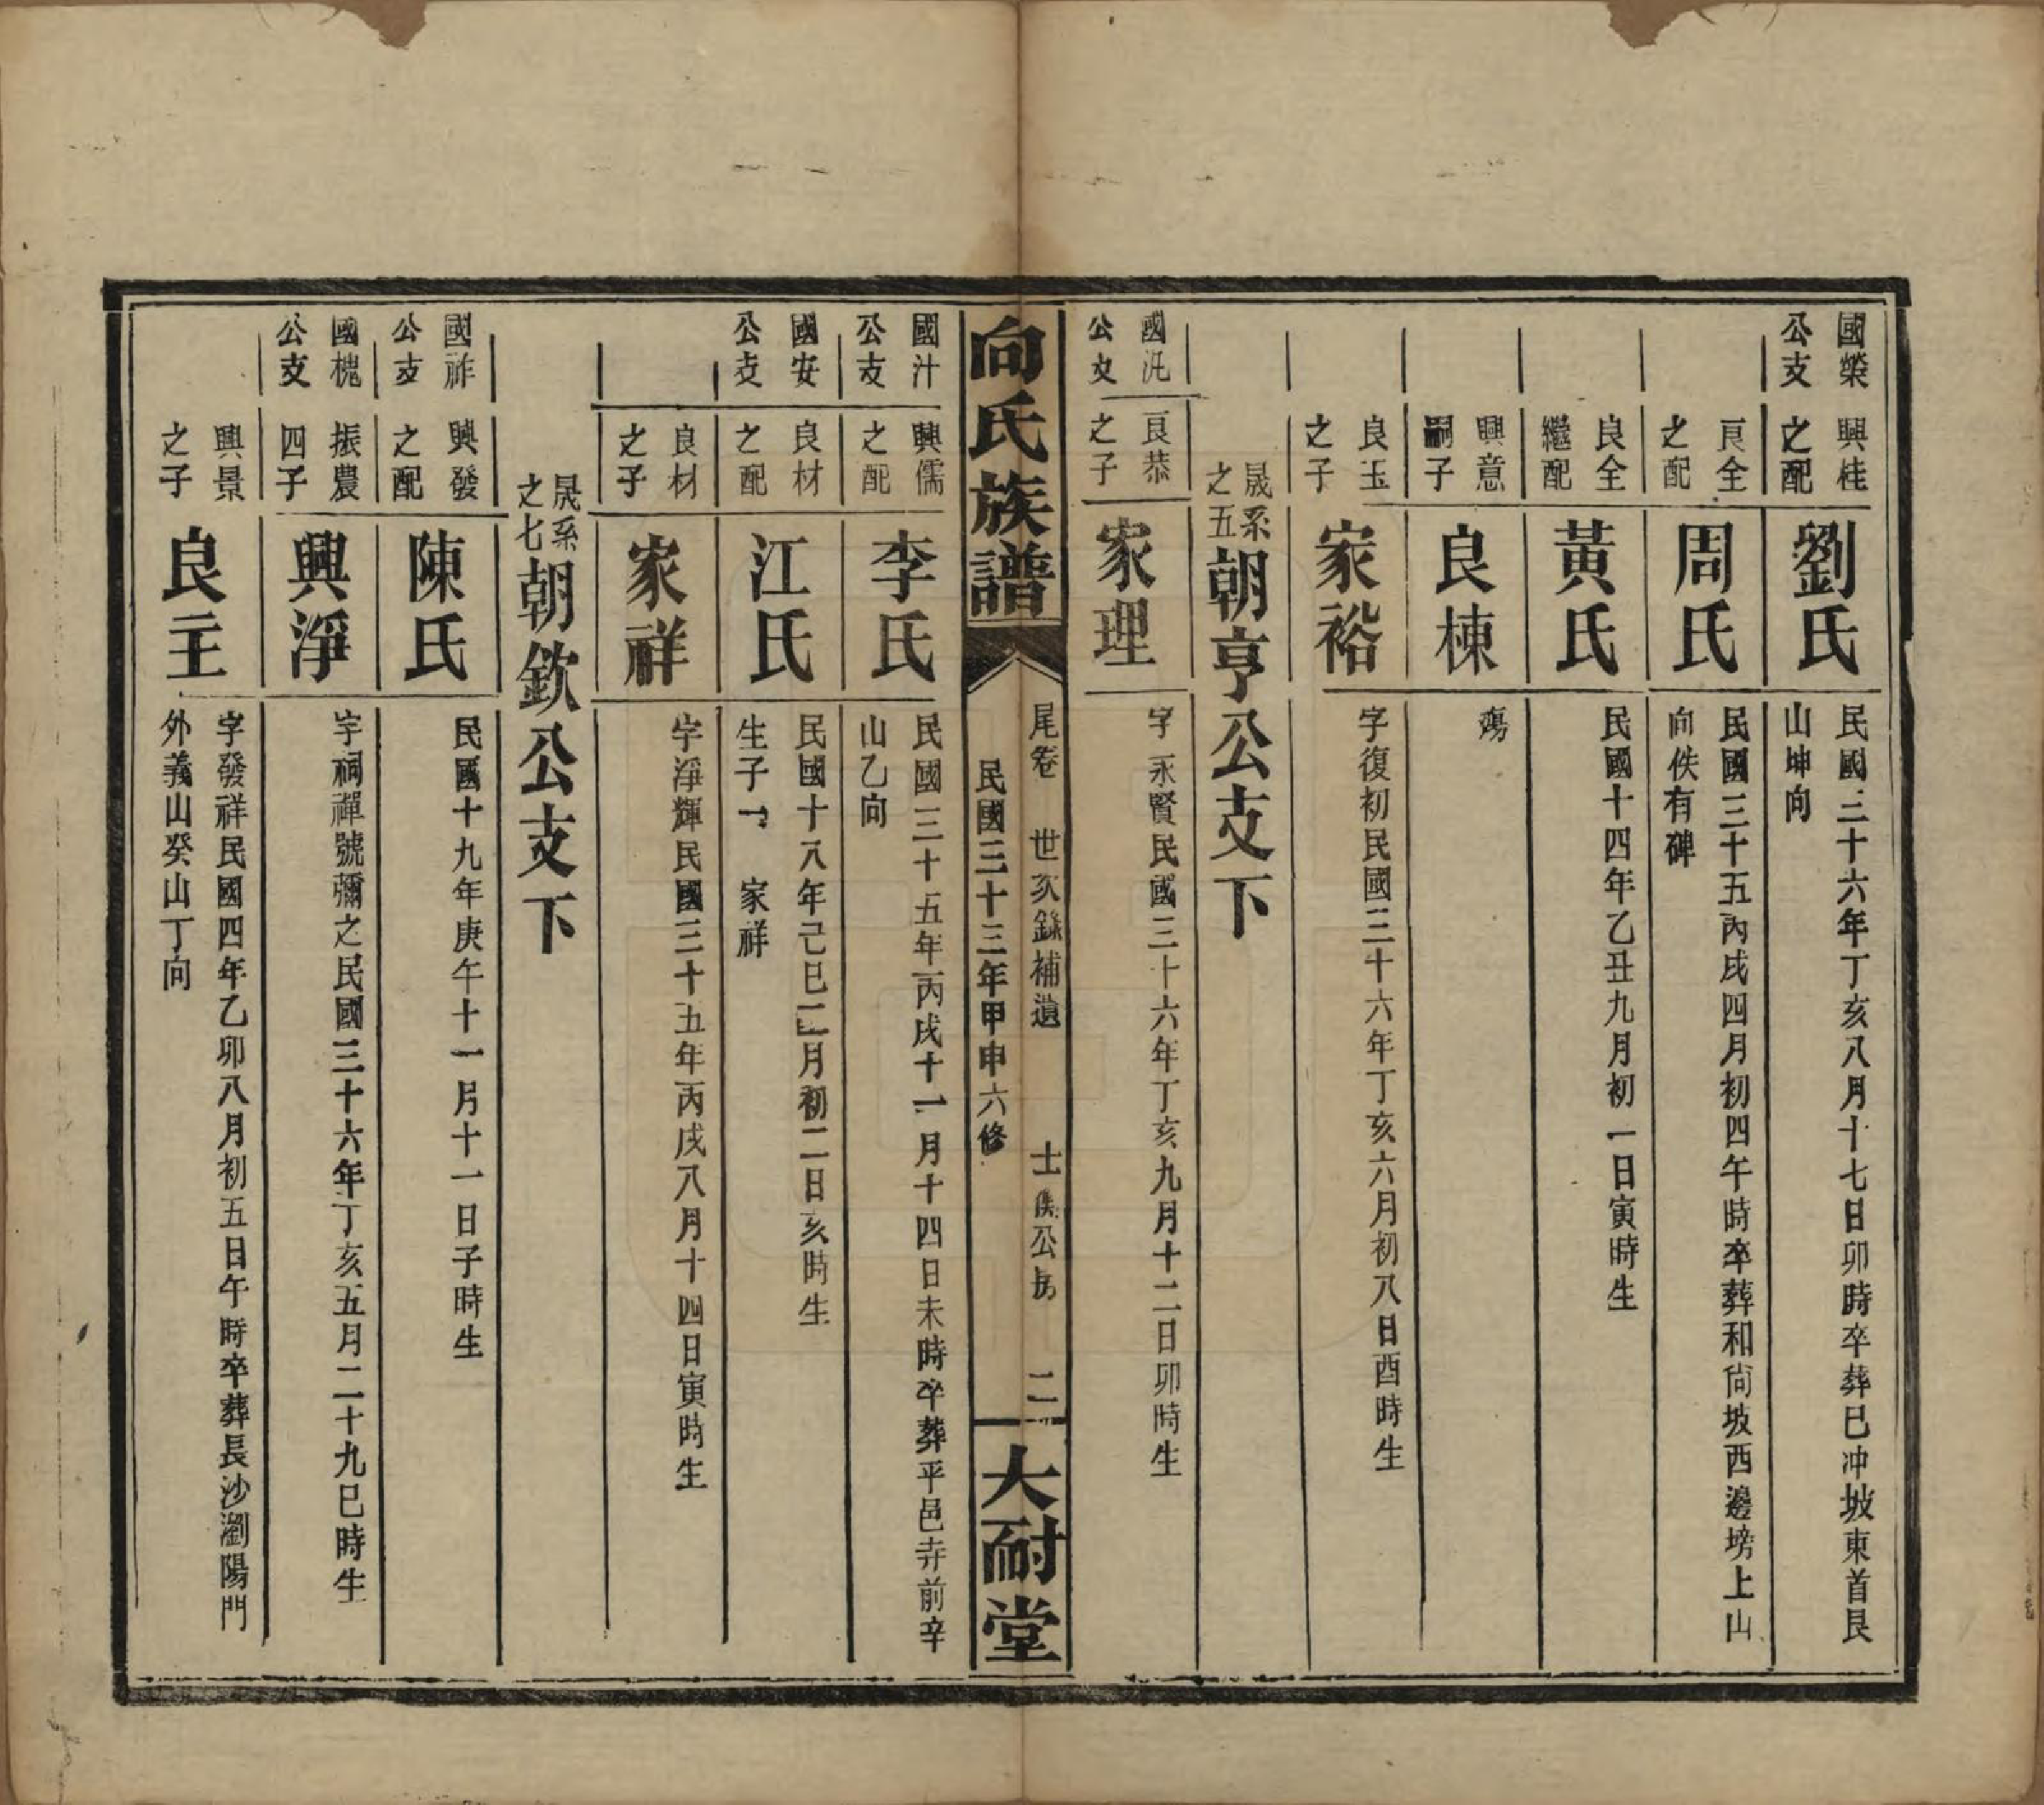 國榮公支
興桂之配
劉氏
民國三十六年丁亥八月十七日卯時卒葬巳冲坡東首艮
山坤向
良全之配
周氏
民國三十五丙戌四月初四午時卒葬和尙坡西邊塝上山
向佚有碑
良全繼配
黃氏
民國十四年乙丑九月初一日寅時生
興意嗣子
良棟
殤
良玉之子
家裕
字復初民國三十六年丁亥六月初八日酉時生
晟系之五朝亨公支下
國汍公支
良恭之子
家理
字永賢民國三十六年丁亥九月十二日卯時生
向氏族譜
尾卷 世次錄補遺 士 公房 二
民國三十三年甲申六修
大耐堂
國汁公支
興儒之配
李氏
民國三十五年丙戌十一月十四日未時卒葬平邑寺前辛
山乙向
國安公支
良材之配
江氏
民國十八年己巳二月初二日亥時生
生子一 家祥
良材之子
家祥
字淨輝民國三十五年丙戌八月十四日寅時生
晟系之七朝欽公支下
國祚公支
興發之配
陳氏
民國十九年庚午十一月十一日子時生
國槐公支
振農四子
興淨
字祠禪號彌之民國三十六年丁亥五月二十九巳時生
興景之子
良玉
字發祥民國四年乙卯八月初五日午時卒葬長沙瀏陽門
外義山癸山丁向